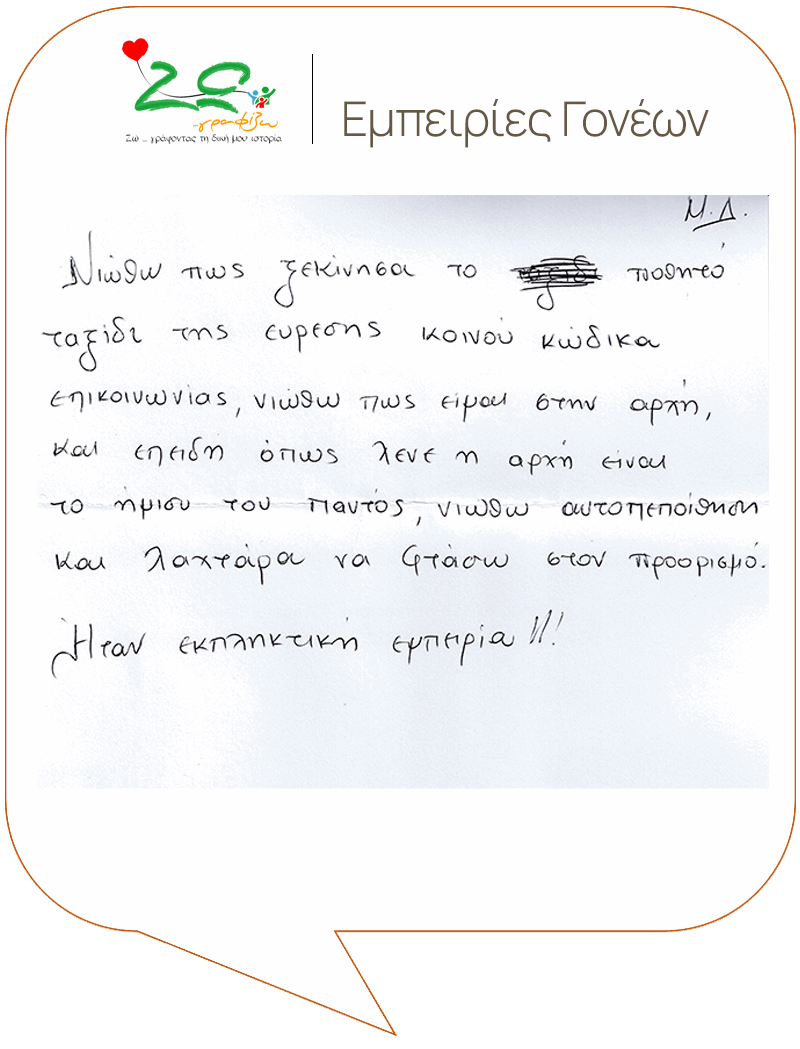 Ζω
-γραφίζω
Ζω - γράφοντας τη δική μου ιστορία
Εμπειρίες Γονέων
Μ.Δ.
Νιώθω πως ξεκίνησα το ταξίδι ποθητό
ταξίδι της ευρεσης κοινού κώδικα
επικοινωνίας, νιώθω πως είμαι στην αρχή,
και επειδή όπως λενε η αρχή είναι
το ήμισυ του παντός, νιώθω αυτοπεποίθηση
και λαχτάρα να φτάσω στον προορισμό.
Ήταν εκπληκτική εμπειρία!!!